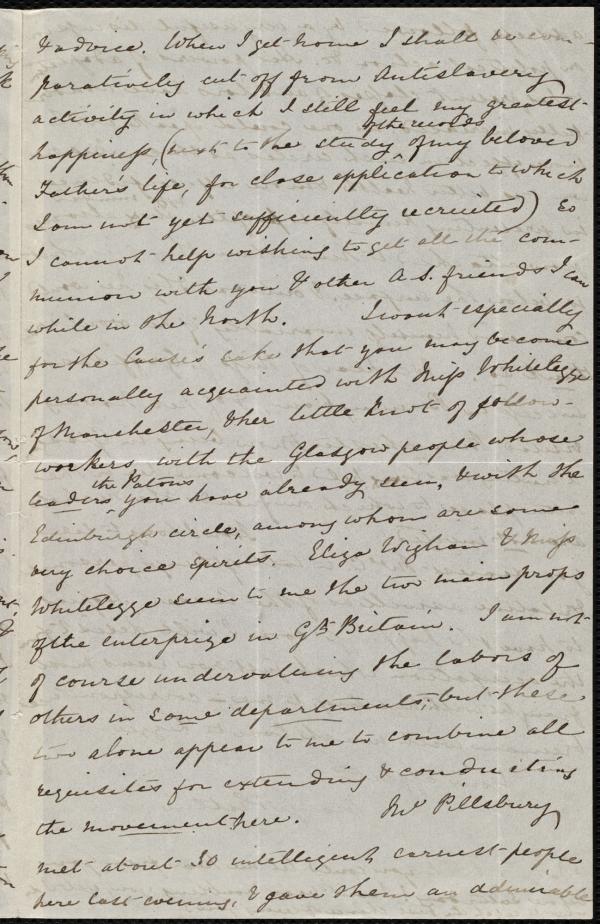 & advice. When I get home I shall be com-
paratively cut off from Antislavery
activity in which I still feel my greatest
happiness, (next to the study of the records of my beloved
Father's life, for close application to which
I am not yet sufficiently recruited) So
I cannot help wishing to get all the com-
munion with you & other A.S. friends I can
while in the North. I want especially
for the Cause's sake that you may become
personally acquainted with Miss Whitelegge
of Manchester, & her little knot of fellow-
workers, with the Glasgow people whose
leaders the Patons you have already seen, & with the
Edinburgh circle, among whom are some
very choice spirits. Eliza Wigham & Miss
Whitelegge seem to me the two main props
of the enterprize in Gt. Britain. I am not
of course undervaluing the labors of
others in some departments; but these
two alone appear to me to combine all
requisites for extending & conducting
the movement here. Mr Pillsbury
met about 30 intelligent earnest people
here last evening, & gave them an admirable